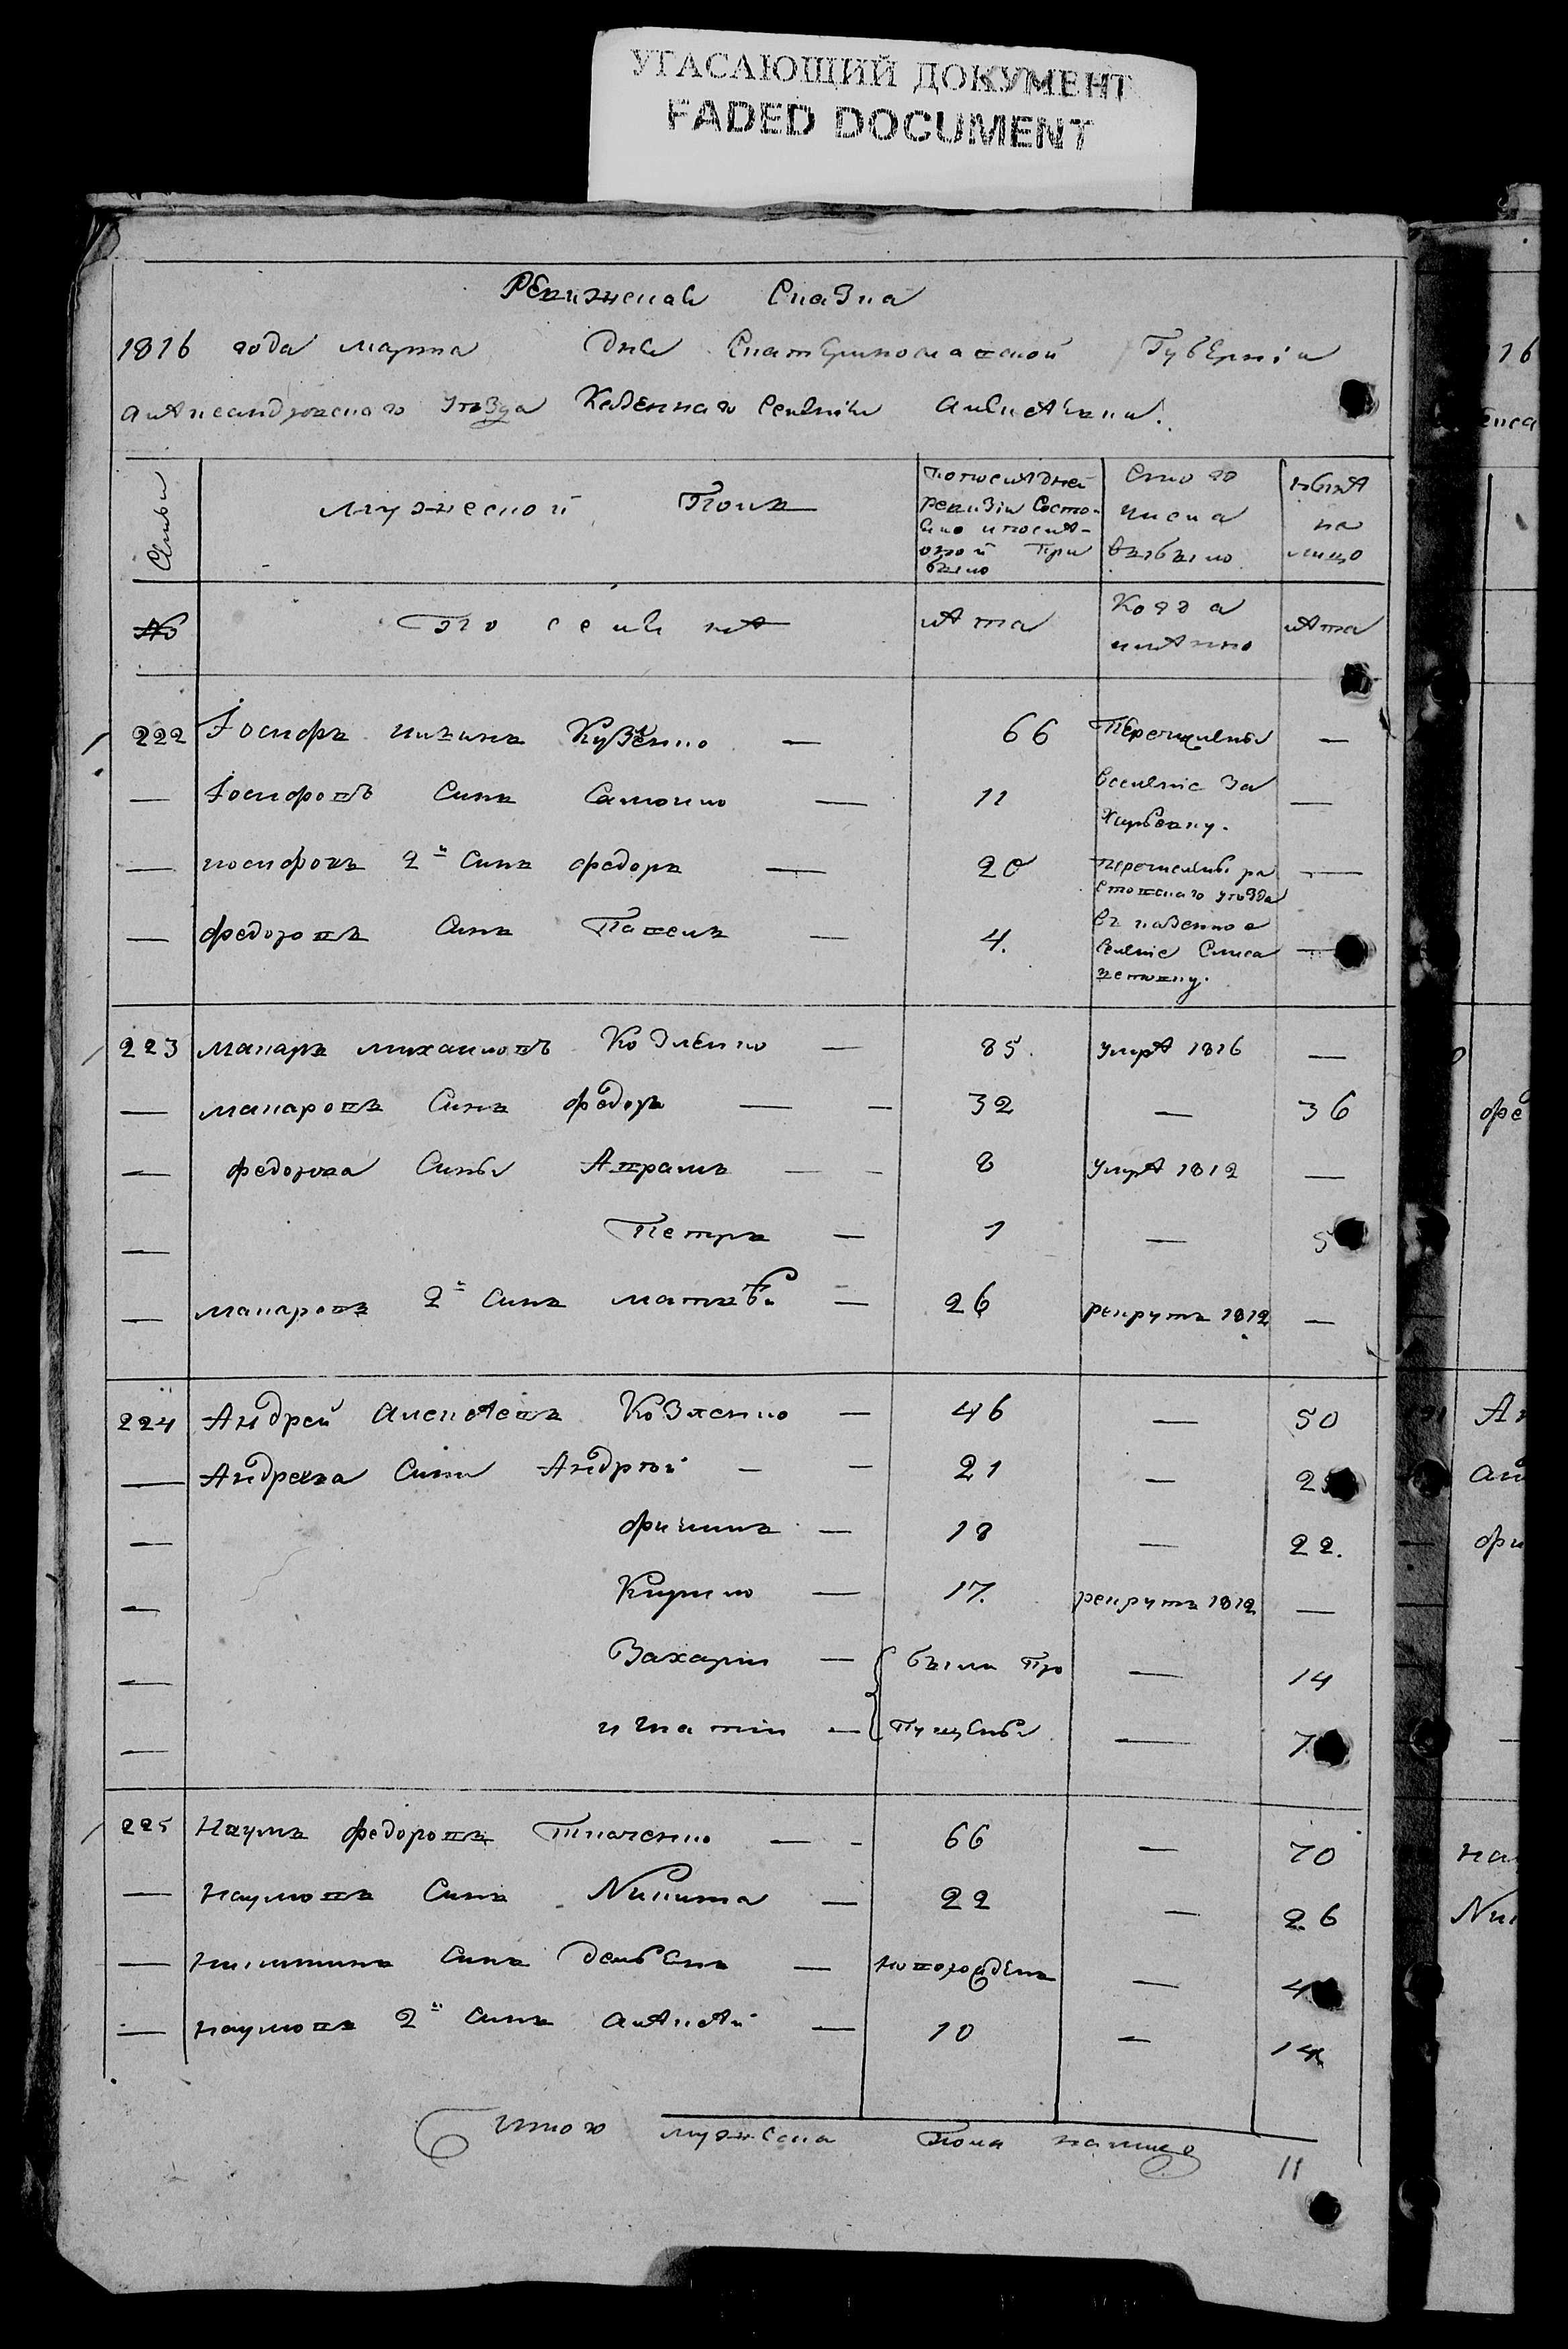 УГАСАЮЩИЙ ДОКУМЕНТ
FADED DOCUMENT
Ревизская Сказка
1816 года марта дня Екатеринославской Губернiи
Александровскаго уѣзда Казеннаго селенiя
Семьи
мужеской Полъ
По последней ревизiи состояло и после оной прибыло
Изъ того числа выбыло
ныне на лицо
№
По селенiе
лѣта
Когда имѣнно
лѣта
222 Iосифъ Кузѣнко — 66 Перечислены —
— Iосифовъ Синъ Самойло — 11 в селенiе за —
— иосифовъ 2й Синъ федоръ — 20 перечислены ра —
стовскаго уѣзда
— федоровъ Синъ Павелъ — 4. въ казенное
селенiе —
223 макаръ михаиловъ Козленко — 85. умрѣ 1816 —
— макаровъ Синъ федоръ — — 32 — 36
— федорова Сины Авраамъ — — 8 умрѣ 1812 —
— Петръ — 1 — 5
— макаровъ 2й Синъ матвѣй — 26 рекрутъ 1812 —
224 Андрей алексѣевъ Козленко — 46 — 50
— Андреева Сини Андрѣй — — 21 — 2
— филипъ — 18 — 22.
— Кирило — 17. рекрутъ 1812 —
— Захарiй — были про — 14
— игнатiй — пущены — 7
225 Наумъ федоровъ Ткаченко — — 66 — 70
— наумовъ Синъ Никита — 22 — 26
— никитинъ Синъ демьянъ — новорожденъ — 4
— наумовъ 2й Синъ алѣксѣй — 10 — 14
итого мужеска пола налицо 11